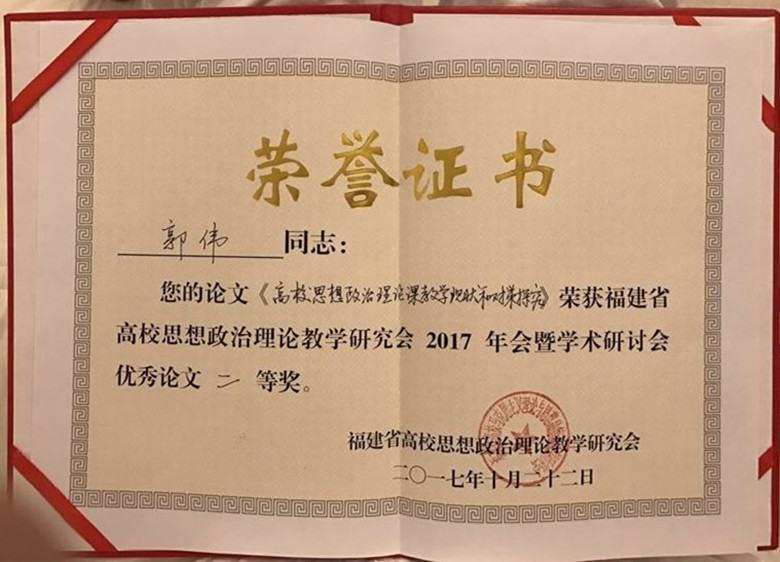 荣誉证书
郭伟 同志：
您的论文《高校思想政治理论课教学现状和对策探究》荣获福建省
高校思想政治理论教学研究会 2017 年会暨学术研讨会
优秀论文 二 等奖。
福建省高校思想政治理论教学研究会
二〇一七年十月二十二日